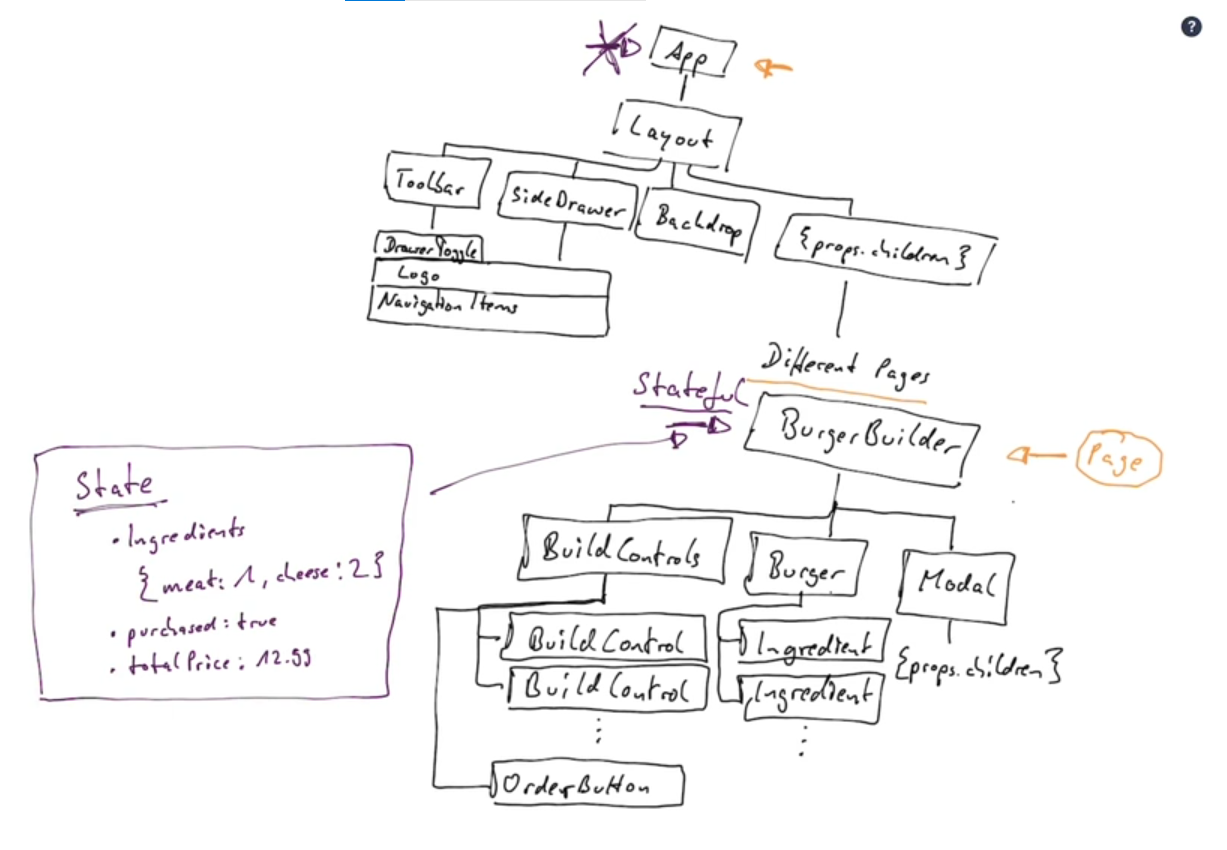 ?
App
Layout
Toolbar
SideDrawer
Backdrop
{props.children}
DrawerToggle
Logo
Navigation Items
Different Pages
Stateful
BurgerBuilder
Page
State
• Ingredients
{meat: 1, cheese: 2}
• purchased: true
• totalPrice: 12.99
BuildControls
Burger
Modal
BuildControl
Ingredient
{props.children}
BuildControl
Ingredient
OrderButton